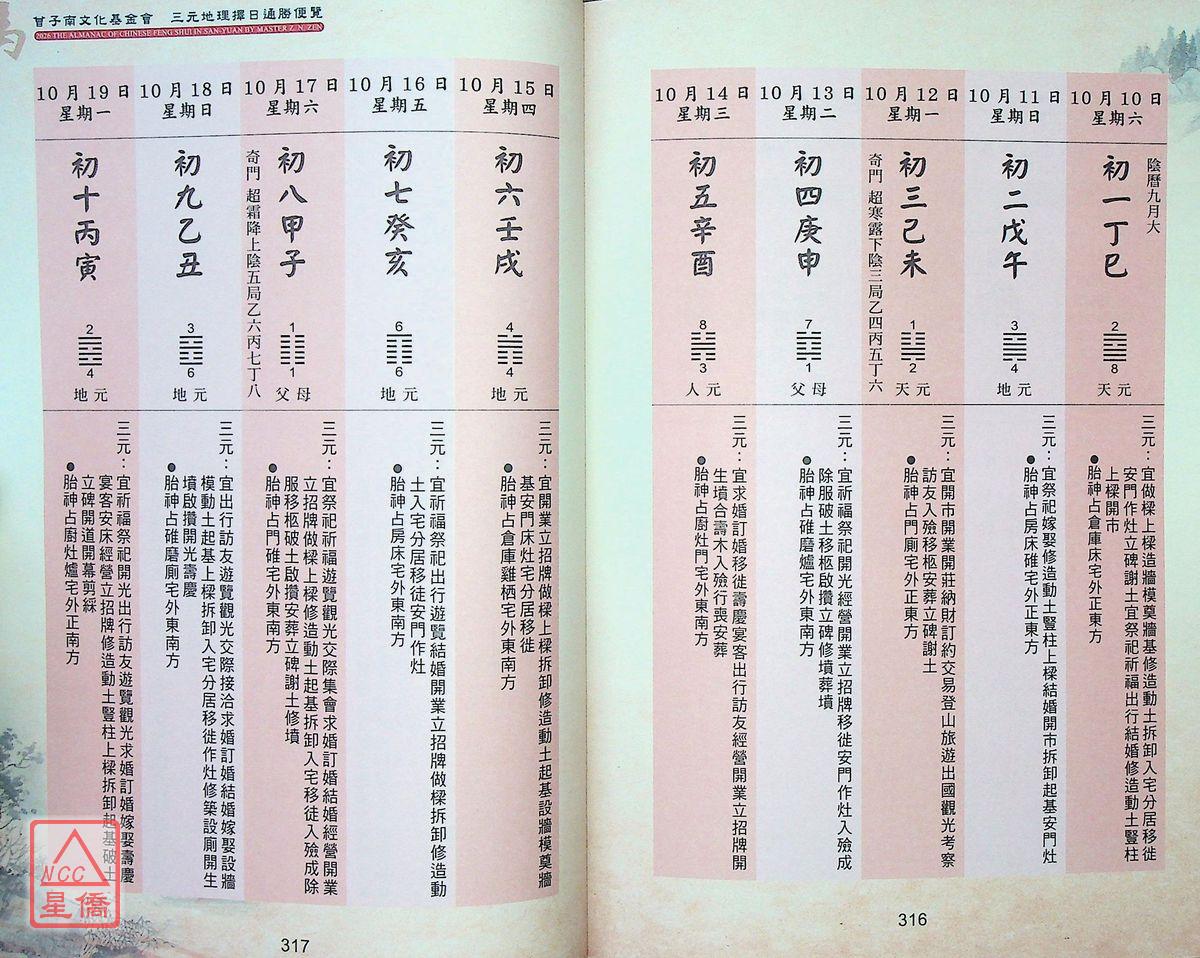 曾子南文化基金會 三元地理擇日通勝便覽
2026 THE ALMANAC OF CHINESE FENG SHUI IN SAN-YUAN BY MASTER Z. N. ZEN
10月10日
星期六
陰曆九月大
初一丁巳
2
8
天元
三元：宜做樑上樑造牆模奠牆基修造動土拆卸入宅分居移徙
安門作灶立碑謝土宜祭祀祈福出行結婚修造動土豎柱
上樑開市
●胎神占倉庫床宅外正東方
10月11日
星期日
初二戊午
3
4
地元
三元：宜祭祀嫁娶修造動土豎柱上樑結婚開市拆卸起基安門灶
●胎神占房床碓宅外正東方
10月12日
星期一
初三己未
奇門 超寒露下陰三局乙四丙五丁六
1
2
天元
三元：宜開市開業開莊納財訂約交易登山旅遊出國觀光考察
訪友入殮移柩安葬立碑謝土
●胎神占門廁宅外正東方
10月13日
星期二
初四庚申
7
1
父母
三元：宜祈福祭祀開光經營開業立招牌移徙安門作灶入殮成
除服破土移柩啟攢立碑修墳葬墳
●胎神占碓磨爐宅外東南方
10月14日
星期三
初五辛酉
8
3
人元
三元：宜求婚訂婚移徙壽慶宴客出行訪友經營開業立招牌開
生墳合壽木入殮行喪安葬
●胎神占廚灶門宅外東南方
316
10月15日
星期四
初六壬戌
4
4
地元
三元：宜開業立招牌做樑上樑拆卸修造動土起基設牆模奠牆
基安門床灶宅分居移徙
●胎神占倉庫雞栖宅外東南方
10月16日
星期五
初七癸亥
6
6
地元
三元：宜祈福祭祀出行遊覽結婚開業立招牌做樑拆卸修造動
土入宅分居移徒安門作灶
●胎神占房床宅外東南方
10月17日
星期六
初八甲子
奇門 超霜降上陰五局乙六丙七丁八
1
1
父母
三元：宜祭祀祈福遊覽觀光交際集會求婚訂婚結婚經營開業
立招牌做樑上樑修造動土起基拆卸入宅移徒入殮成除
服移柩破土啟攢安葬立碑謝土修墳
●胎神占門碓宅外東南方
10月18日
星期日
初九乙丑
3
6
地元
三元：宜出行訪友遊覽觀光交際接洽求婚訂婚結婚嫁娶設牆
模動土起基上樑拆卸入宅分居移徙作灶修築設廁開生
墳啟攢開光壽慶
●胎神占碓磨廁宅外東南方
10月19日
星期一
初十丙寅
2
4
地元
三元：宜祈福祭祀開光出行訪友遊覽觀光求婚訂婚嫁娶壽慶
宴客安床經營立招牌修造動土豎柱上樑拆卸起基破土
立碑開道開幕剪綵
●胎神占廚灶爐宅外正南方
NCC
星僑
317